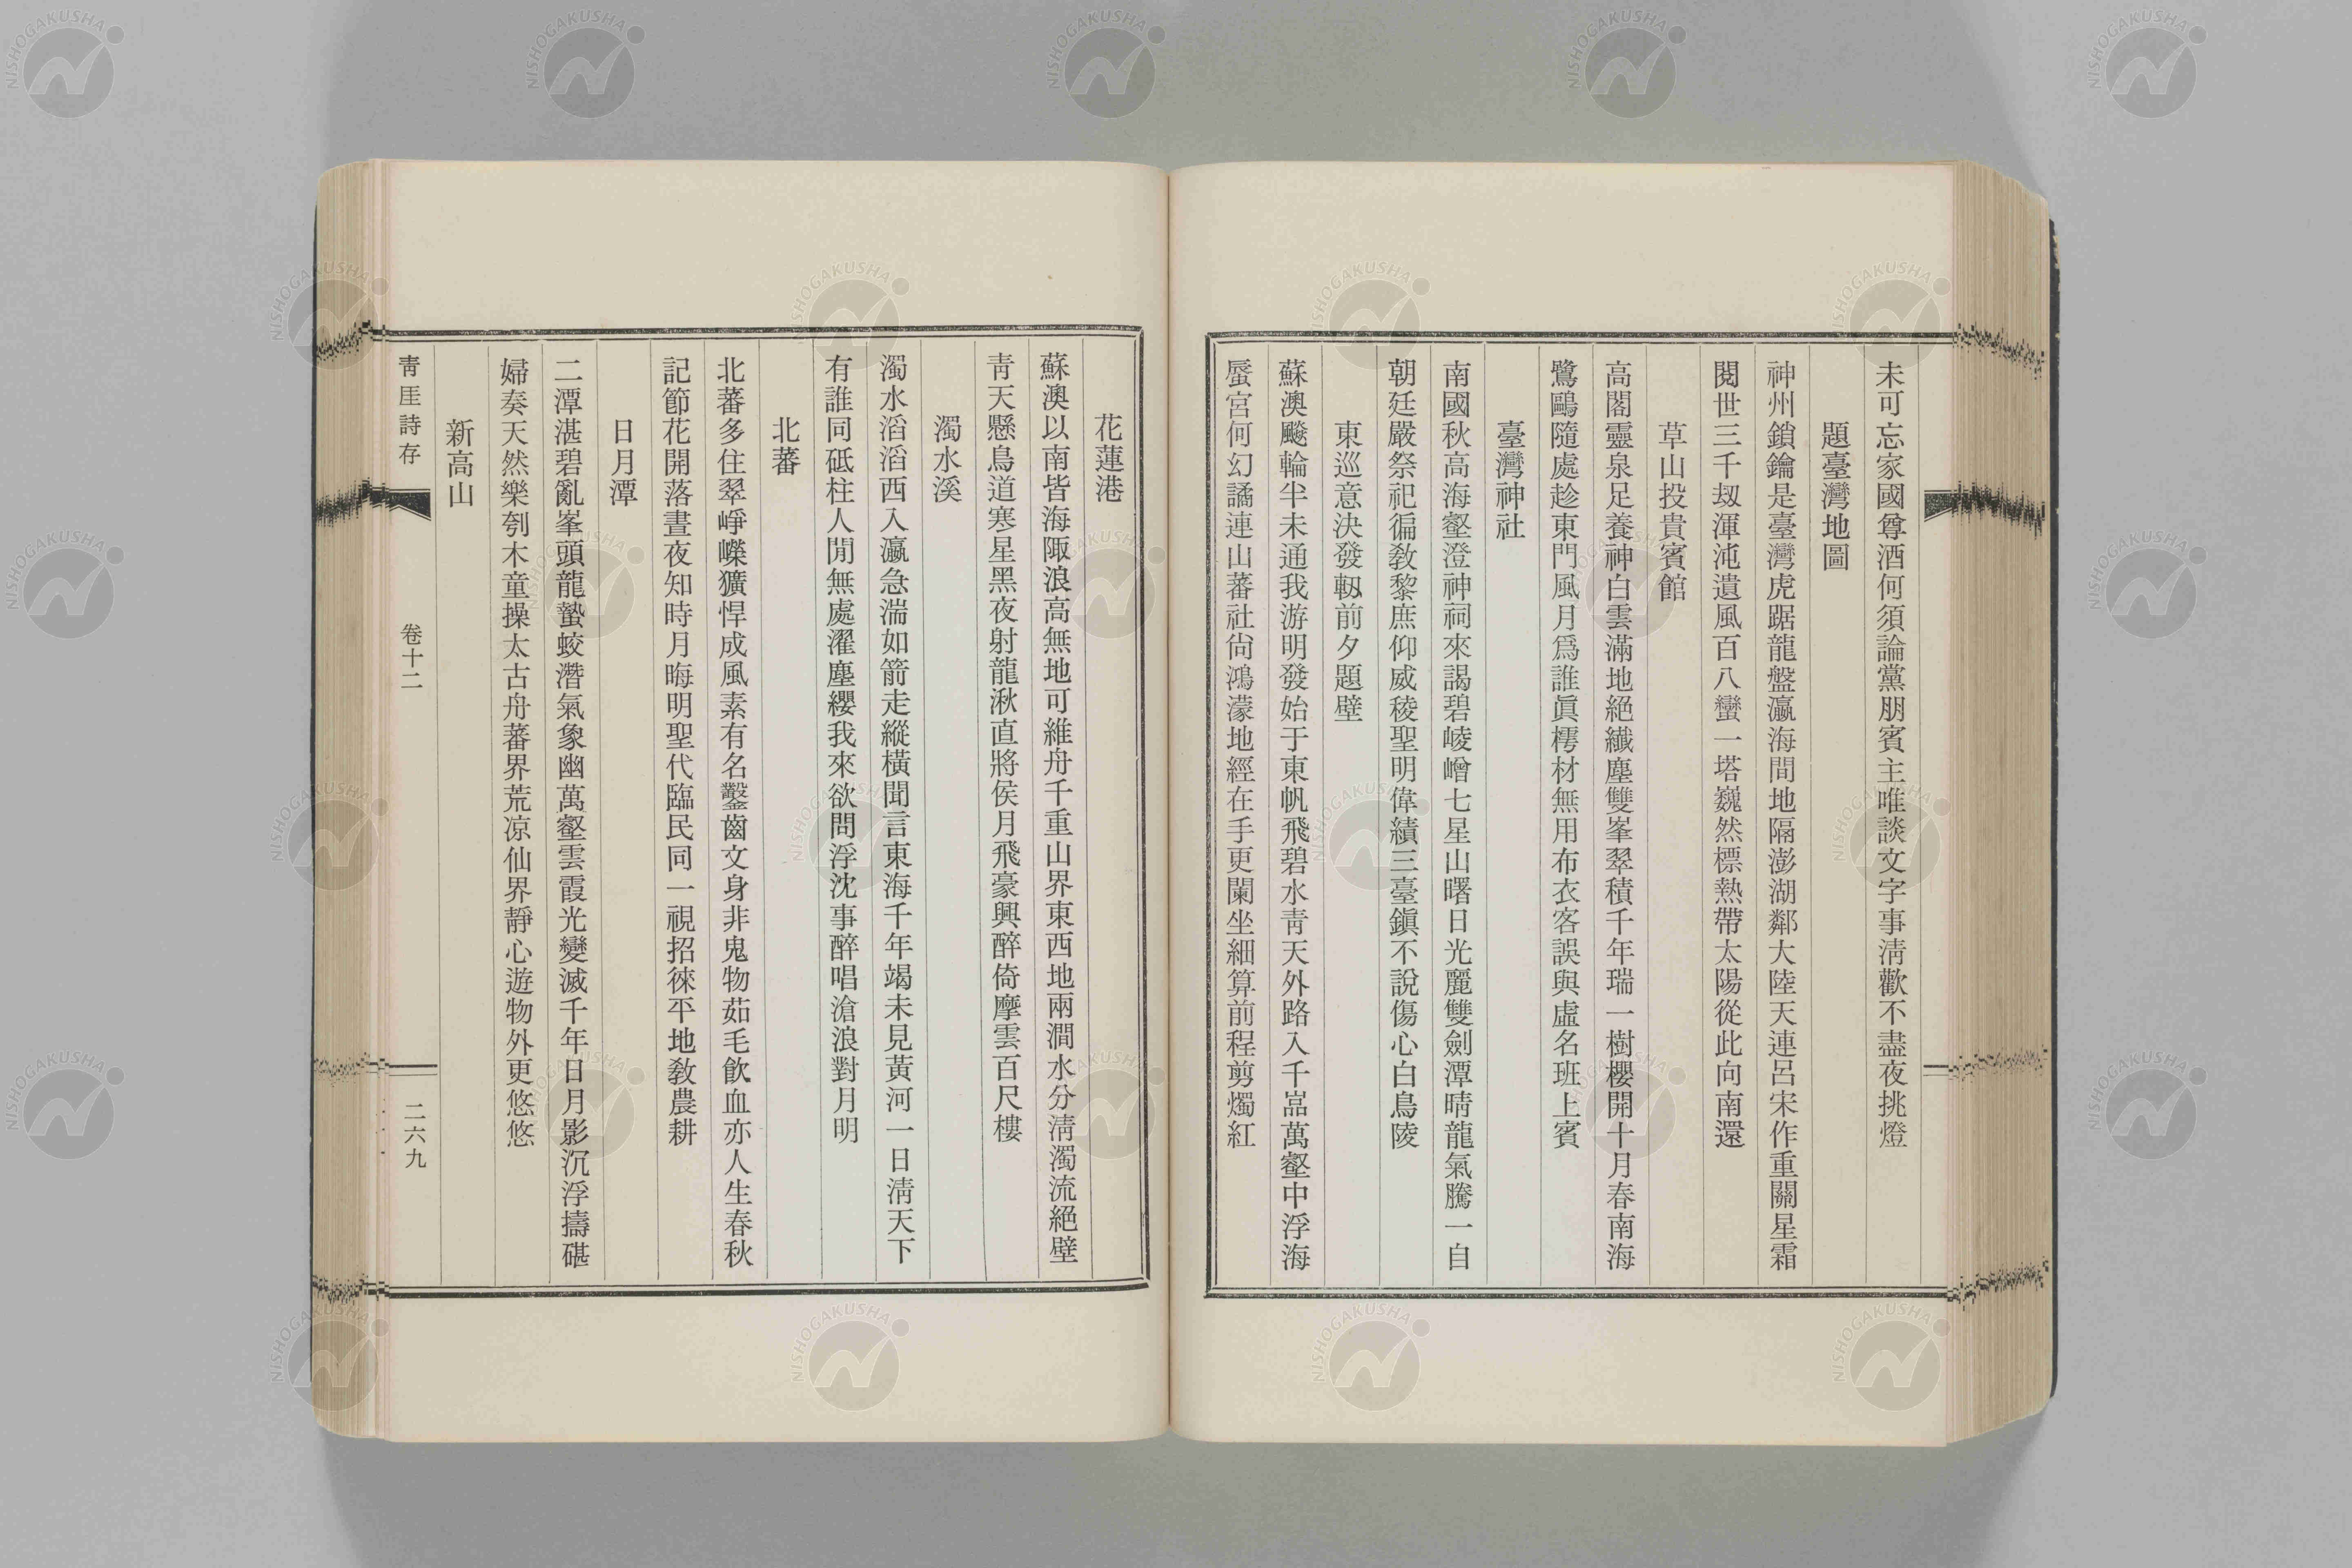 未可忘家國尊酒何須論黨朋賓主唯談文字事淸歡不盡夜挑燈
題臺灣地圖
神州鎖鑰是臺灣虎踞龍盤瀛海間地隔澎湖鄰大陸天連呂宋作重關星霜
閱世三千刼渾沌遺風百八蠻一塔巍然標熱帶太陽從此向南還
草山投貴賓館
高閣靈泉足養神白雲滿地絕纖塵雙峯翠積千年瑞一樹櫻開十月春南海
鷺鷗隨處趁東門風月爲誰眞樗材無用布衣客誤與虛名班上賓
臺灣神社
南國秋高海壑澄神祠來謁碧崚嶒七星山曙日光麗雙劍潭晴龍氣騰一自
朝廷嚴祭祀徧敎黎庶仰威稜聖明偉績三臺鎭不說傷心白鳥陵
東巡意決發軔前夕題壁
蘇澳飈輪半未通我游明發始于東帆飛碧水靑天外路入千嵓萬壑中浮海
蜃宮何幻譎連山蕃社尙鴻濛地經在手更闌坐細算前程剪燭紅
花蓮港
蘇澳以南皆海陬浪高無地可維舟千重山界東西地兩澗水分淸濁流絕壁
靑天懸鳥道寒星黑夜射龍湫直將侯月飛豪興醉倚摩雲百尺樓
濁水溪
濁水滔滔西入瀛急湍如箭走縱橫聞言東海千年竭未見黃河一日淸天下
有誰同砥柱人閒無處濯塵纓我來欲問浮沈事醉唱滄浪對月明
北蕃
北蕃多住翠崢嶸獷悍成風素有名鑿齒文身非鬼物茹毛飮血亦人生春秋
記節花開落晝夜知時月晦明聖代臨民同一視招徠平地敎農耕
日月潭
二潭湛碧亂峯頭龍蟄蛟潛氣象幽萬壑雲霞光變滅千年日月影沉浮擣碪
婦奏天然樂刳木童操太古舟蕃界荒凉仙界靜心遊物外更悠悠
新高山
靑厓詩存
卷十二
二六九
NISHOGAKUSHA